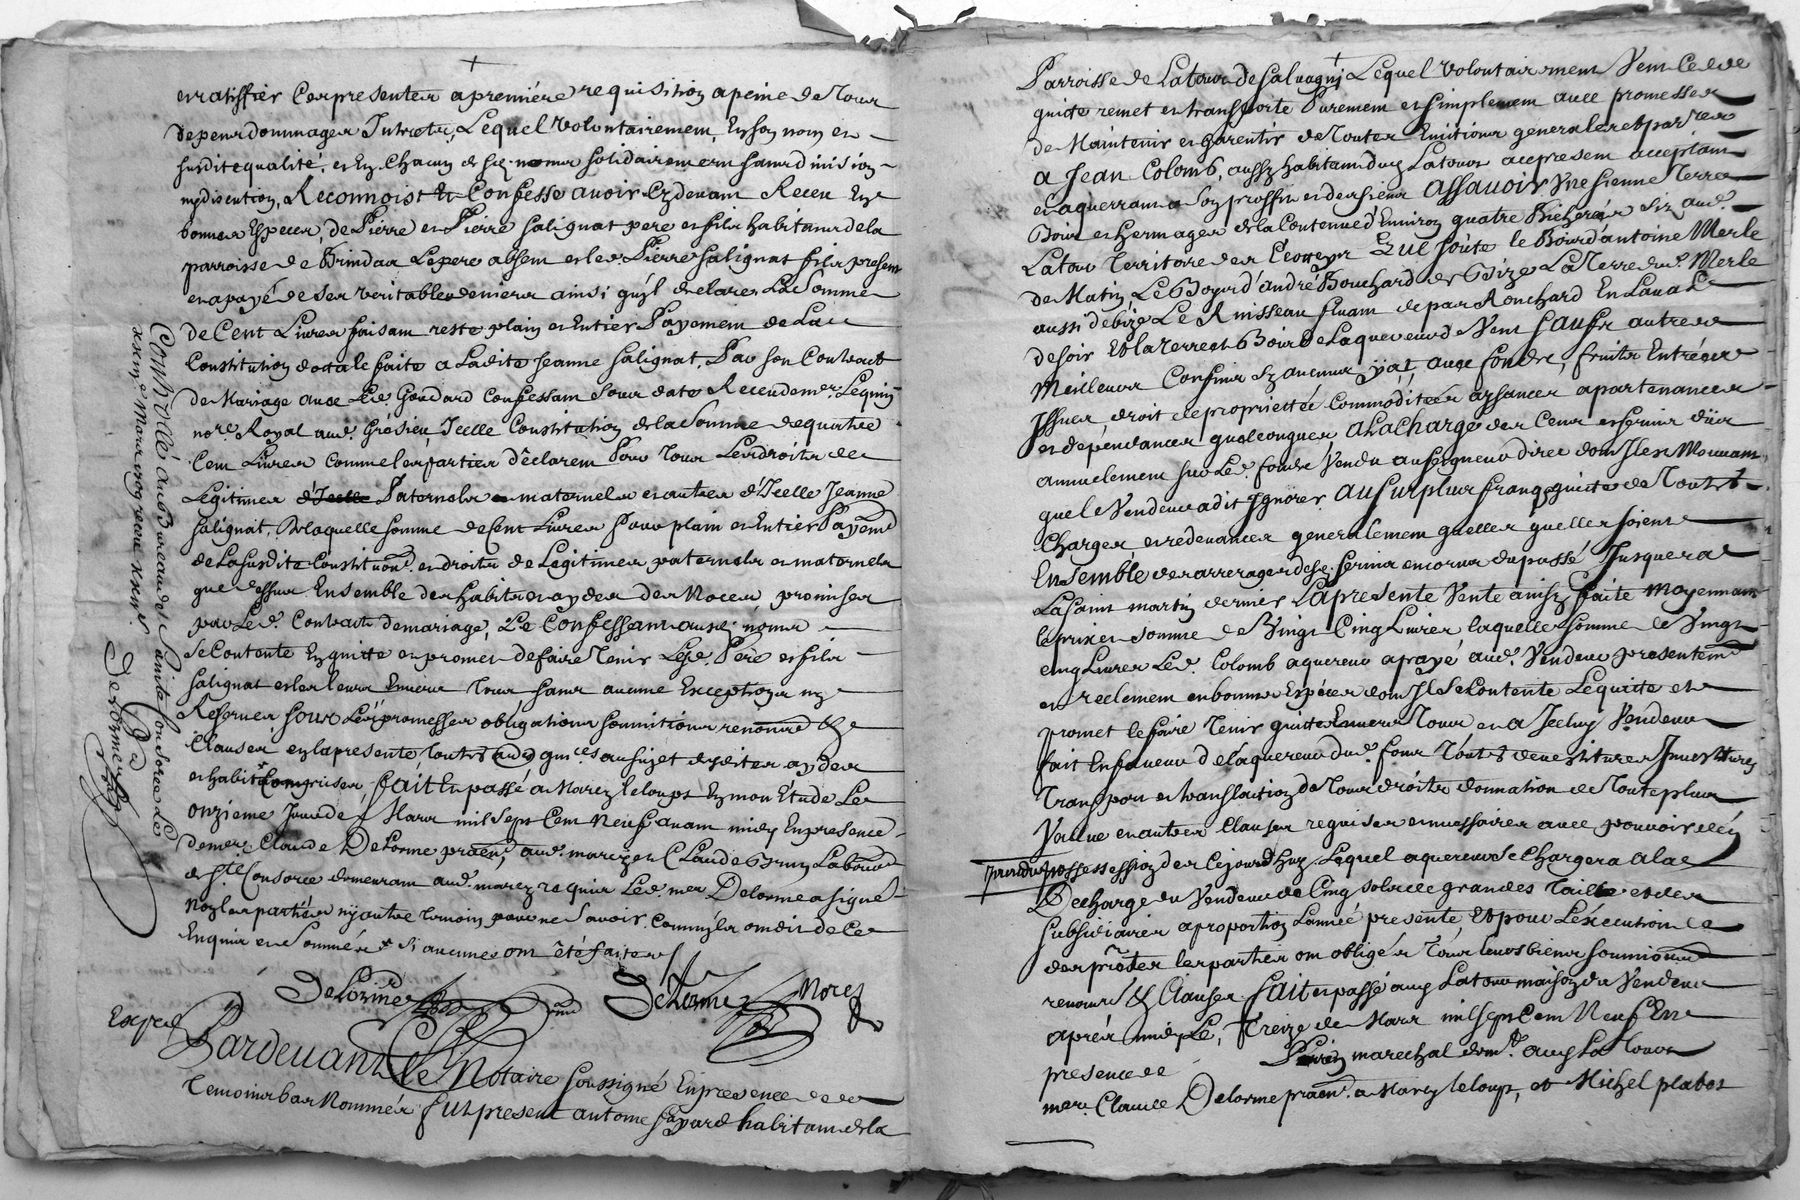 en ratiffier Ces presentes a premiére requisition a peine de Tous
depens dommages Interetz, Lequel volontairement, En son nom et
susdite qualité, et En Chacun de ses noms solidairement sans division
ny discution, Reconnoist Et Confesse avoir Cy devant Receu En
bonnes Especes, de Pierre et Pierre Salignat pere et fils habitans de la
parroisse de Brindas Le pere absent et led Pierre Salignat fils present
et a payé de ses veritables deniers ainsi qu'il declare La Somme
de Cent Livres faisant reste plain et Entier Payement de La
Constitution dotale faite a Ladite Jeanne Salignat, Par son Contract
de Mariage avec Led. Goudard Confessant sous datte Receu de me.
no.re Royal aud. Grésieu, Icelle Constitution de la Somme de quatre
Cent Livres comme les parties déclarent Pour Tous Les droits de
Legitimes Paternels et maternels et autres d'Icelle Jeanne
Salignat, De laquelle somme de Cent Livres pour plain et Entier Payemt
de La susdite Constituon. et droits de Legitimes paternels et maternels
que dessus Ensemble des habits et aydes des Noces, promises
par Led. Contract de mariage, Le Confessant ausd. noms
se Contente En quitte et promet de faire Tenir Lesd. Pere et fils
Salignat et les leurs Envers Tous sans aucune Exception ny
Reserve, sous Les promesses obligations soumitions renonce. &
Clauses
et habits Comprises, fait et passé a Marcy le loups En mon Etude Le
onzieme Jour de Mars mil sept Cent Neuf avant midy En presence
de me. Claude Delorme praen, aud. marcy et Claude Brun Laboure
de Ste. Consorce demeurant aud. marcy requis Led. mer. Delorme a signé
Non les parties ny autre temoin pour ne Savoir, Comm'ils ont dit de Ce
Enquis et Sommés si aucunes ont été faites
Delorme Delorme Nores
Exped
Pardevant Le Notaire soussigné En presence des
Temoins bas Nommés fut present antoine payard habitant de la
Conttrollé au Bureau de Sainte Consorce Le
de Mars 1709 receu
Delorme
Parroisse de Latour de Salvagny Lequel volontairement Vent Cede
quitte remet et transporte Purement et simplement avec promesses
de Maintenir et garentir de Toutes Evitions generales et parres
a Jean Colomb, aussy habitant dud Latour acepresent acceptant
et aquerrant a son proffit et des siens assavoir Une sienne Terre
Bois et hermages de la Contenue d'Environ quatre Bicherées siz aud.
Latour Territoire des Que Joute le Bois d'antoine Merle
de Matin, Le Boys d'andré Bouchard de Bize La Terre dud. Merle
aussi de bize Le Ruisseau fluant de par Ronchard En Laval
de soir Et la Terre et Bois de Laquereur de Vent saufs autres
Meilleurs Confins sy aucuns y at, avec fonds, fruits Entrées
Issues, droit de proprietté Commoditées aysances apartenances
et dependances quelconques A La Charge des Cens et servis dûs
annuelement sur Led. fonds Vendu au seigneur direc dont Il est Mouvant,
que le Vendeur a dit Ignorer, au surplus franq quitte de Toutes
Charges et redevances generalement quelles quelles soient
Ensemble des arrerages desd. servis encorus du passé Jusques a
La saint martin dernier La presente Vente ainsy faite Moyennant
le prix et somme de Vingt Cinq Livres laquelle somme de Vingt
cinq Livres Led. Colomb aquereur a payé aud. Vendeur presentemt
et reelement en bonnes Espéces dont Il Se Contente Le quitte et
promet le faire Tenir quitte Envers Tous et a Icelluy Vendeur
fait En faveur de Laquereur dud. fonds Toutes devestitures Investitures
Transport et translaition de Tous droits donnation de Toute plus
Value et autres Clauses requises et necessaires avec pouvoir d'en
prendre possession des Cejourd'huy Lequel aquereur se Chargera a la
Decharge du Vendeur de Cinq sols de grandes Tailles et des
subsidiaires a proportion L'année presente Et pour L'exécution
des prntes les parties ont obligés Tous leurs biens soumions
renonce &c Clauses fait et passé aud Latour maison du Vendeur
aprés midy Le Treize de Mars mil sept Cent Neuf En
presence de marechal demt. aud Latour
mer. Claude Delorme praen. a Marcy le loup, et Michel